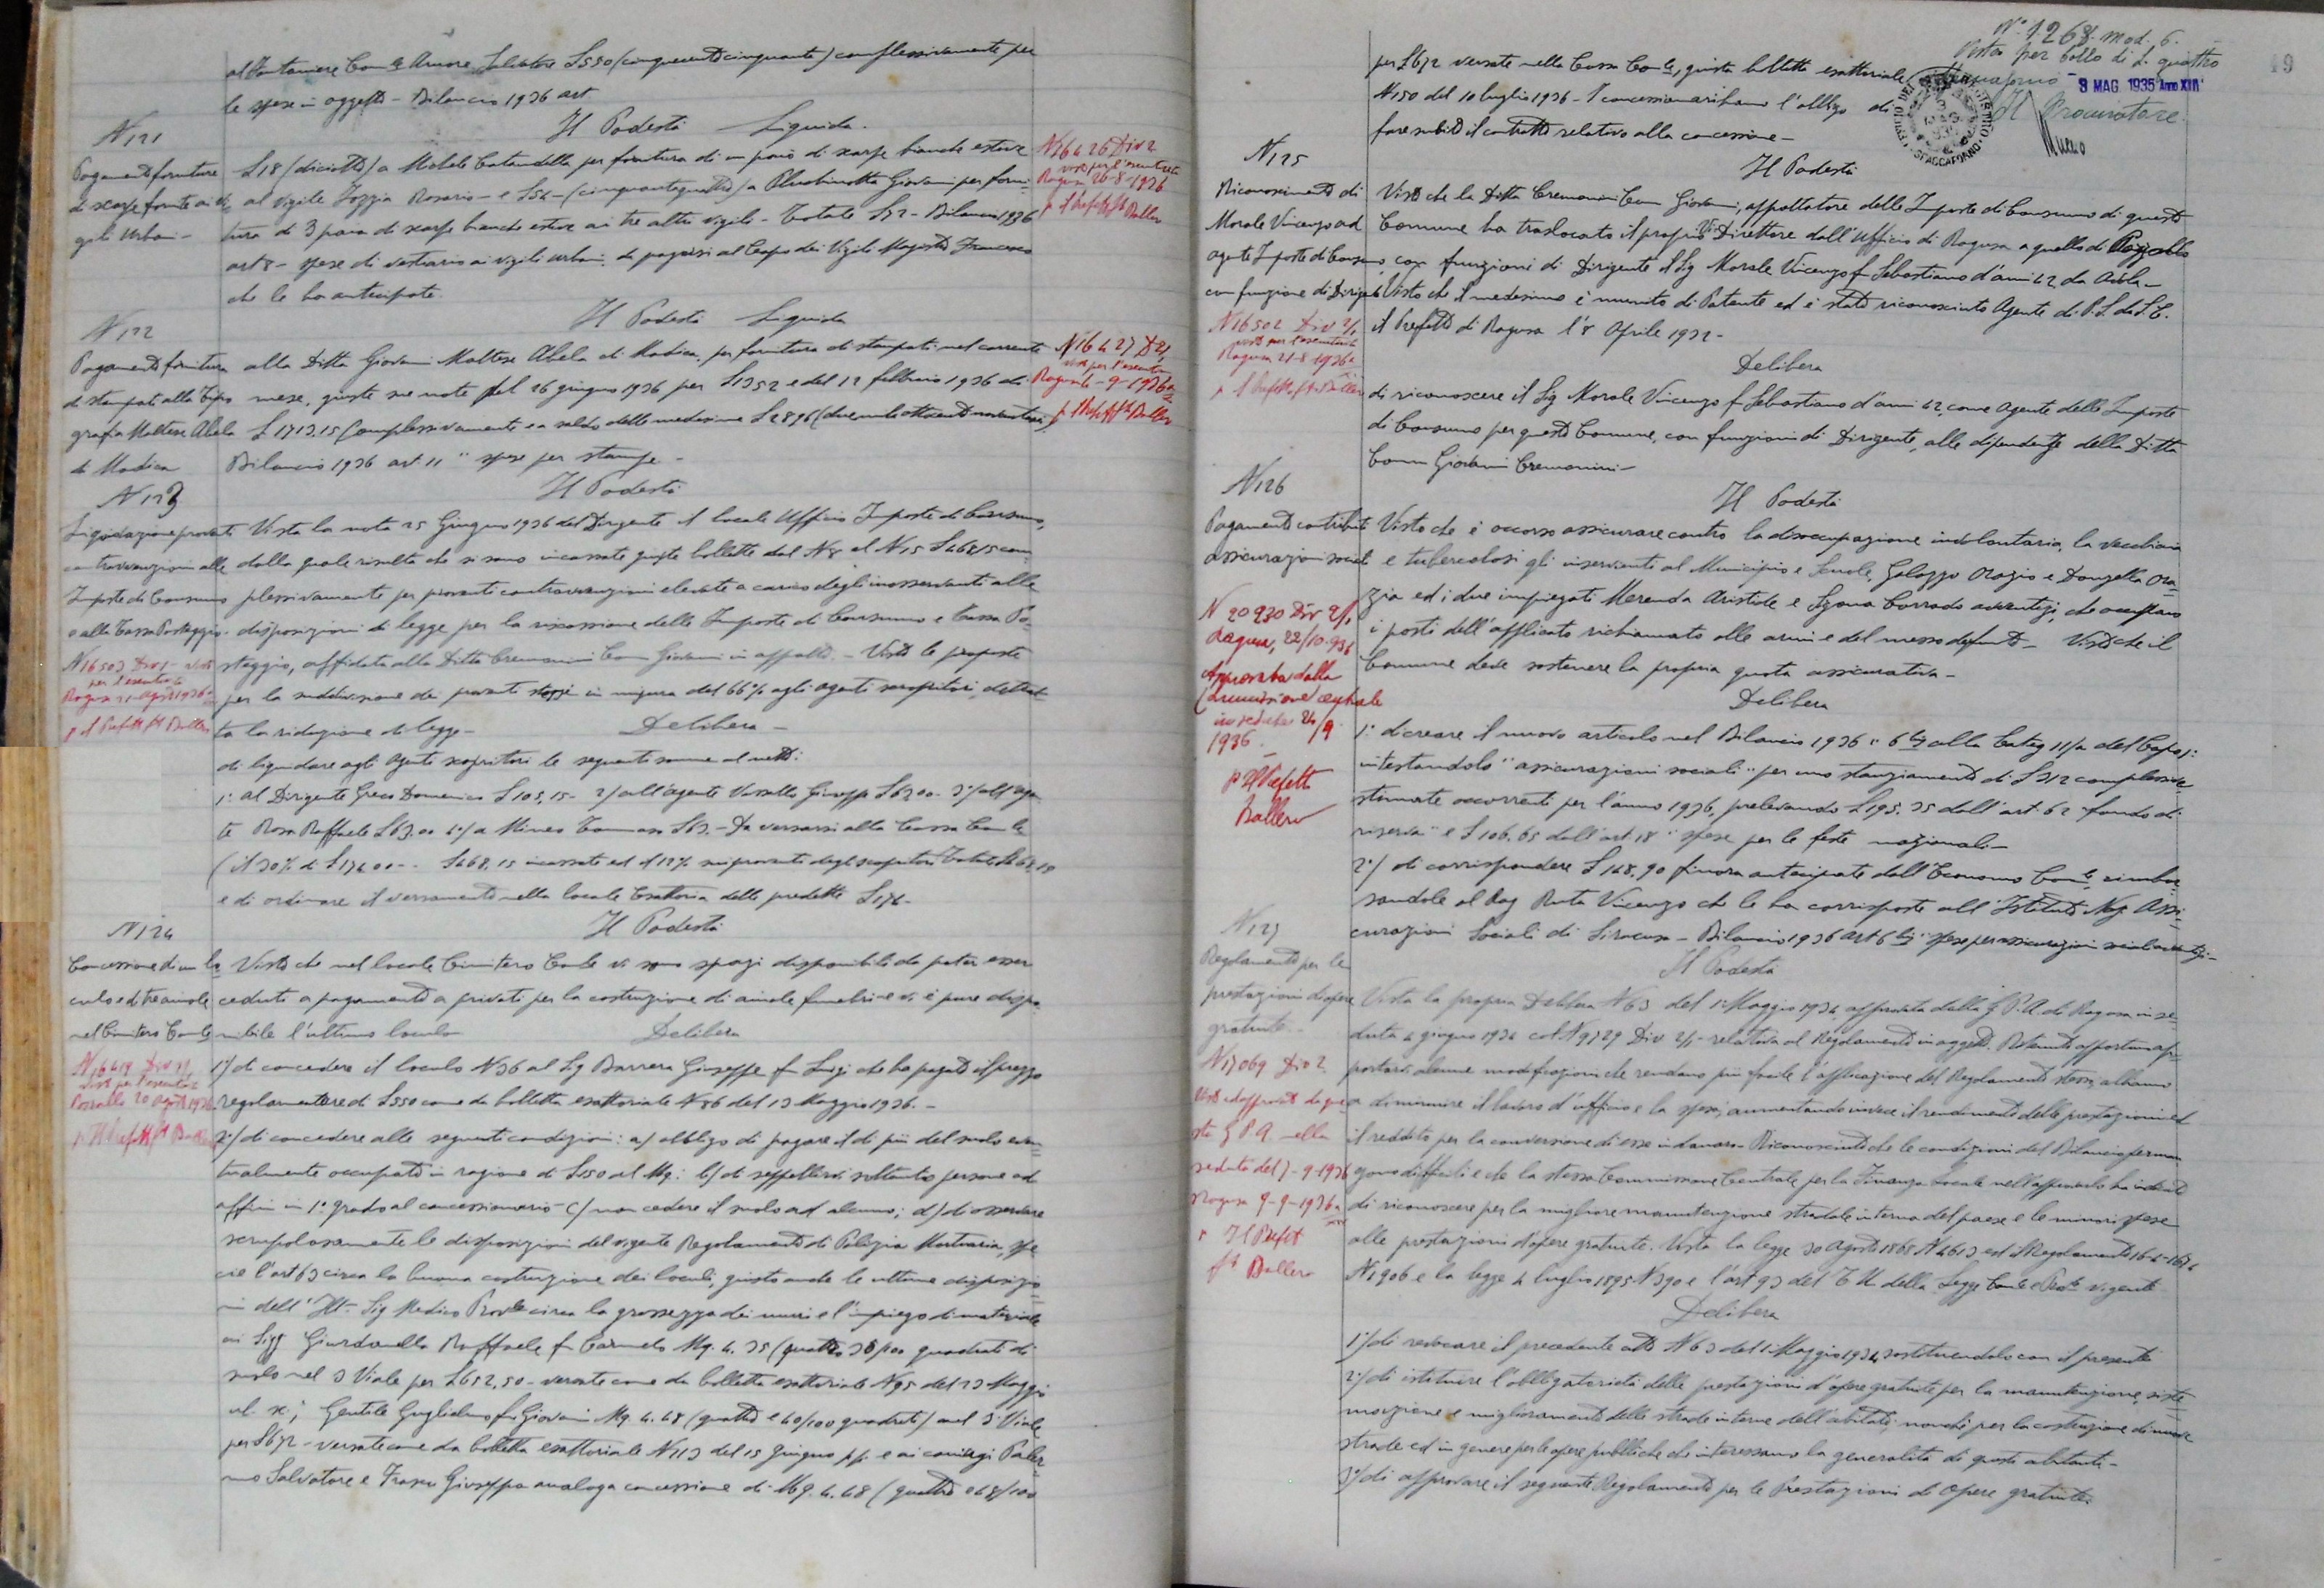 al Fontaniere Com.le Amore Salvatore L 550 (cinquecentocinquanta) complessivamente per
le spese in oggetto - Bilancio 1936 art
N 121
Il Podestà Liquida.
Pagamento forniture
di scarpe fornite ai Vi
gili Urbani -
L 18 (diciotto) a Michele Catandella per fornitura di un paio di scarpe bianche estive
al vigile Iozzia Rosario - e L 54 - (cinquantaquattro) a Giovanni per forni-
tura di 3 paia di scarpe bianche estive ai tre altri vigili - Totale L 72 - Bilancio 1936
art 8 - spese di vestiario ai vigili urbani, da pagarsi al Capo dei Vigili Francesco
che le ha anticipate.
N 16426 Div 2
visto per l'esecutività
Ragusa 26-8-1936
p Il Prefetto fto Ballero
N 122
Il Podestà Liquida
Pagamento fornitura
di stampati alla Tipo
grafia Maltese Abela
di Modica
alla Ditta Giovanni Maltese Abela di Modica, per fornitura di stampati nel corrente
mese, giuste sue note del 26 giugno 1936 per L 1352 e del 12 febbraio 1936 di
L 1713.15 Complessivamente e a saldo delle medesime L 2896 (duemilaottocentonovantasei)
Bilancio 1936 art. 11 " spese per stampe -
N 16427 D 2/1
visto per l'esecut
Ragusa - 9 - 1936
p Il Prefetto fto Ballero
N 123
Il Podestà
Liquidazione proventi
contravvenzioni alle
Imposte di Consumo
e alla Tassa Posteggio.
Vista la nota 25 Giugno 1936 del Dirigente il locale Ufficio Imposte di Consumo,
dalla quale risulta che si sono incassate giuste bollette dal N 8 al N 15 L 468,15 com
plessivamente per proventi contravvenzioni elevate a carico degli inosservanti alle
disposizioni di legge per la riscossione delle Imposte di Consumo e tassa Po-
steggio, affidata alla Ditta Cremonini Comm Giovanni in appalto. - Viste le proposte
per la suddivisione dei proventi stessi in misura del 66% agli agenti scopritori, detrat
ta la ridazione di legge -
Delibera -
N 16503 Div 1 - visto
per l'esecutività
Ragusa 21 agosto 1936
p Il Prefetto fto Ballero
di liquidare agli Agenti scopritori le seguenti somme al netto:
1° al Dirigente Greco Domenico L 105,15 - 2°/ all'agente Vassallo Giuseppe L 63,00 - 3°/ all'agen
te Rosa Raffaele L 63.00 4°/ a Mineo Tommaso L 63. - Da versarsi alla Cassa Com.le
(il 30% di L 174.00 - L 468,15 incassate ed il 12% sui proventi degli scopritori Totale L 468,15
e di ordinare il versamento nella locale Esattoria delle predette L 174 -
N 124
Il Podestà
Concessione di un lo
culo e di tre aiuole
nel Cimitero Com.le
Visto che nel locale Cimitero Com.le vi sono spazi disponibili da poter esser
ceduti a pagamento a privati per la costruzione di aiuole funebri - e vi è pure dispo-
nibile l'ultimo loculo
Delibera
N 16419 Div 2/1
visto per l'esecutività
20 agosto 1936
p Il Prefetto fto Ballero
1°/ di concedere il loculo N 36 al Sig Barrera Giuseppe fu Luigi che ha pagato il prezzo
regolamentare di L 550 come da bolletta esattoriale N 86 del 13 Maggio 1936. -
2°/ di concedere alle seguenti condizioni: a/ obbligo di pagare il di più del suolo even
tualmente occupato in ragione di L 150 al Mq: b/ di seppellirvi soltanto persone ed
affini in 1° grado al concessionario - c/ non cedere il suolo ad alcuno; d/ di osservare
scrupolosamente le disposizioni del vigente Regolamento di Polizia Mortuaria, spe
cie l'art 63 circa la buona costruzione dei loculi, giusto anche le ultime disposizio
ni dell'Ill. Sig Medico Prov.le circa la grossezza dei muri e l'impiego di materiale
ai Sigg Giurdanella Raffaele fu Carmelo Mq. 4.35 (quattro 35/100 quadrati di
suolo nel 3 Viale per L 652,50 - versate come da bolletta esattoriale N 95 del 23 Maggio
Gentile Guglielmo fu Giovanni Mq. 4.48 (quattro e 48/100 quadrati) nel 3° Viale
per L 672 - versate come da bolletta esattoriale N 113 del 15 giugno pp. e ai coniugi Paler
mo Salvatore e Giuseppa analoga concessione di Mq. 4.48 (quattro e 48/100
N° 1268 mod. 6.
Visto per bollo di L. quattro
Spaccaforno - 3 MAG 1935 Anno XIII
Il Procuratore
SPACCAFORNO
49
per L 672 versate nella Cassa Com.le, giusta bolletta esattoriale
N 150 del 10 luglio 1936 - I concessionari hanno l'obbligo di
fare subito il contratto relativo alla concessione -
N 125
Il Podestà
Riconoscimento di
Morale Vincenzo ad
agente Imposte di Consumo
con funzione di Dirigente
Visto che la Ditta Cremonini Comm Giovanni, appaltatore delle Imposte di Consumo di questo
Comune ha traslocato il proprio V. Direttore dall'Ufficio di Ragusa a quello di Pozzallo
con funzioni di Dirigente il Sig Morale Vincenzo fu Sebastiano d'anni 42 da Avola -
Visto che il medesimo è munito di Patente ed è stato riconosciuto Agente di P.S. da S.E.
il Prefetto di Ragusa l'8 Aprile 1932 -
N 16502 Div 2/1
visto per l'esecutività
Ragusa 21-8-1936
p Il Prefetto fto Ballero
Delibera
di riconoscere il Sig Morale Vincenzo fu Sebastiano d'anni 42, come Agente delle Imposte
di Consumo per questo Comune, con funzioni di Dirigente, alle dipendenze della Ditta
Comm Giovanni Cremonini -
N 126
Il Podestà
Pagamento contributi
assicurazioni sociali
Visto che è occorso assicurare contro la disoccupazione involontaria, la vecchiaia
e tubercolosi gli inservienti al Municipio e Scuole, Galazzo Orazio e Donzella Ora-
zia ed i due impiegati Merenda Aristide e Sgona Corrado avventizi, che occupano
i posti dell'applicato richiamato alle armi e del messo defunto - Visto che il
Comune deve sostenere la propria quota assicurativa -
Delibera
N 20930 Div 2/1
Ragusa, 22/10.936
Approvata dalla
Commissione Centrale
in seduta 24/9
1936 -
p Il Prefetto
Ballero
1° di creare il nuovo articolo nel Bilancio 1936 " 6 bis alla Categ 11/a del Capo 1°:
intestandolo " assicurazioni sociali " per uno stanziamento di L 312 complessive
stimate occorrenti per l'anno 1936, prelevando L 195.35 dall'art. 62 "fondo di
riserva" e L 106.65 dall'art 18 " spese per le feste nazionali -
2°/ di corrispondere L 168,90 finora anticipate dall'Economo Com.le, rimbor
sandole al Rag Ruta Vincenzo che le ha corrisposte all'Istituto Naz. Assi-
curazioni Sociali di Siracusa - Bilancio 1936 art 6 bis " spese per assicurazioni sociali avventizi -
N 127
Il Podestà
Regolamento per le
prestazioni di opere
gratuite. -
Vista la propria Delibera N 63 del 1 Maggio 1934 approvata dalla G.P.A. di Ragusa in se-
duta 4 giugno 1934 col N 9729 Div 2/1 - relativa al Regolamento in oggetto. Ritenuto opportuno ap-
portarvi alcune modificazioni che rendano più facile l'applicazione del Regolamento stesso, abbiano
a diminuire il lavoro d'ufficio e la spesa, aumentando invece il rendimento delle prestazioni ed
il reddito per la conversione di esse in danaro - Riconosciuto che le condizioni del Bilancio perman
gono difficili e che la stessa Commissione Centrale per la Finanza Locale nell'approvarlo ha
di riconoscere per la migliore manutenzione stradale interna del paese e le minori spese
alle prestazioni d'opere gratuite. Vista la legge 30 Agosto 1868 N 4613 ed il Regolamento
N 1906 e la legge 4 luglio 1895 N 390 e l'art 93 del T.U. della Legge Com.le e Prov.le vigente
N 17069 Div 2
Visto ed approvato da que
sta G P A nella
seduta del 7-9-1936
Ragusa 9-9-1936
p Il Prefetto
fto Ballero
Delibera
1°/ di revocare il precedente atto N 63 del 1 Maggio 1934, sostituendolo con il presente
2°/ di istituire l'obbligatorietà delle prestazioni d'opere gratuite per la manutenzione, siste
mazione e miglioramento delle strade interne dell'abitato, nonché per la costruzione di nuove
strade ed in genere per le opere pubbliche che interessano la generalità di questi abitanti -
3°/ di approvare il seguente Regolamento per le Prestazioni di Opere gratuite.